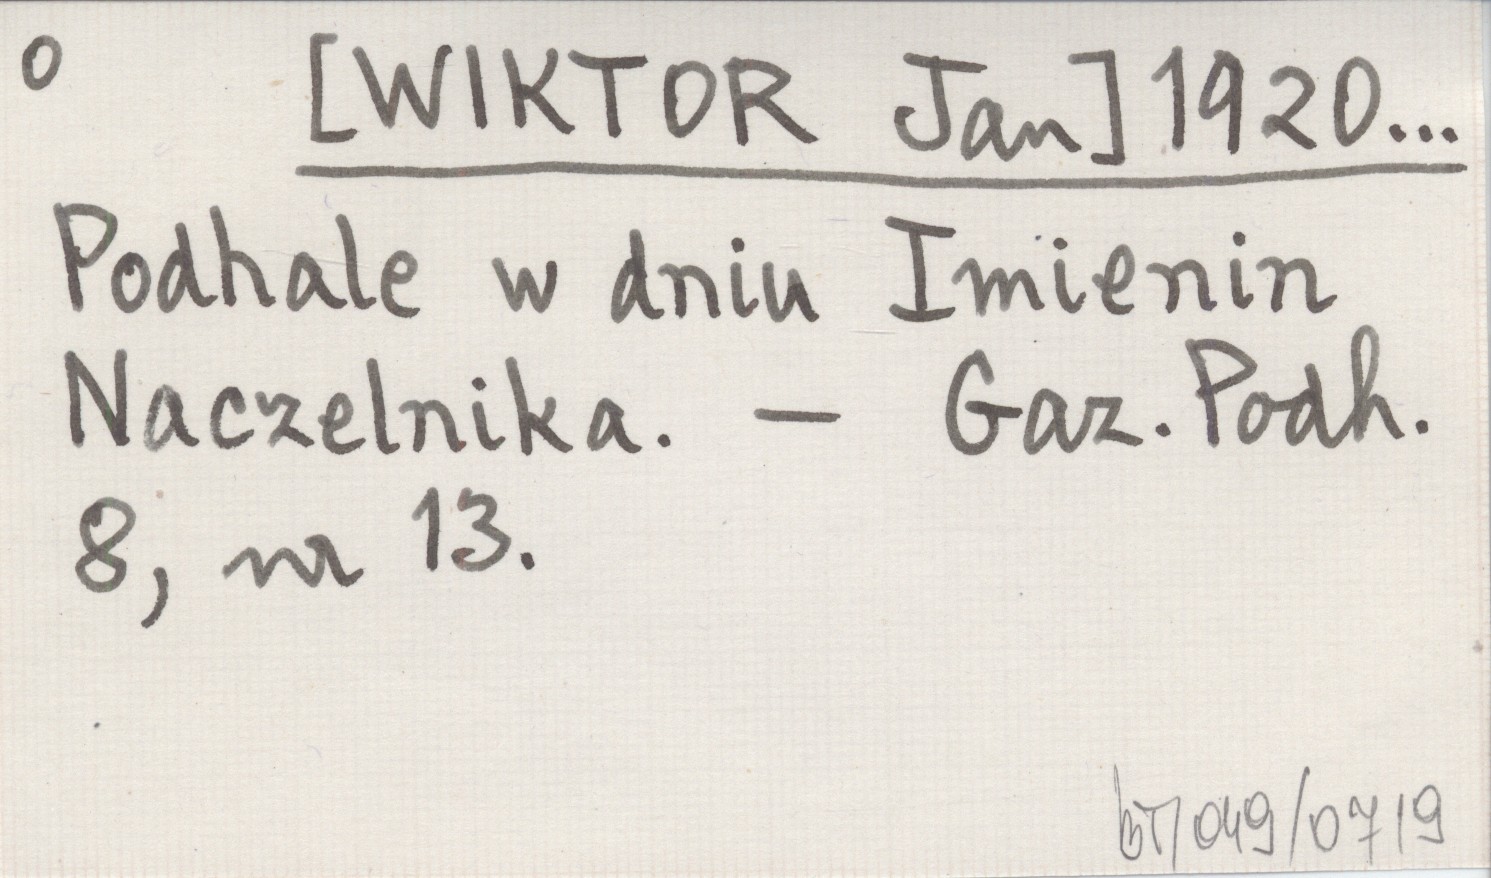 o [WIKTOR Jan] 1920...
Podhale w dniu Imienin
Naczelnika. — Gaz. Podh.
8, nr 13.
BT/049/0719